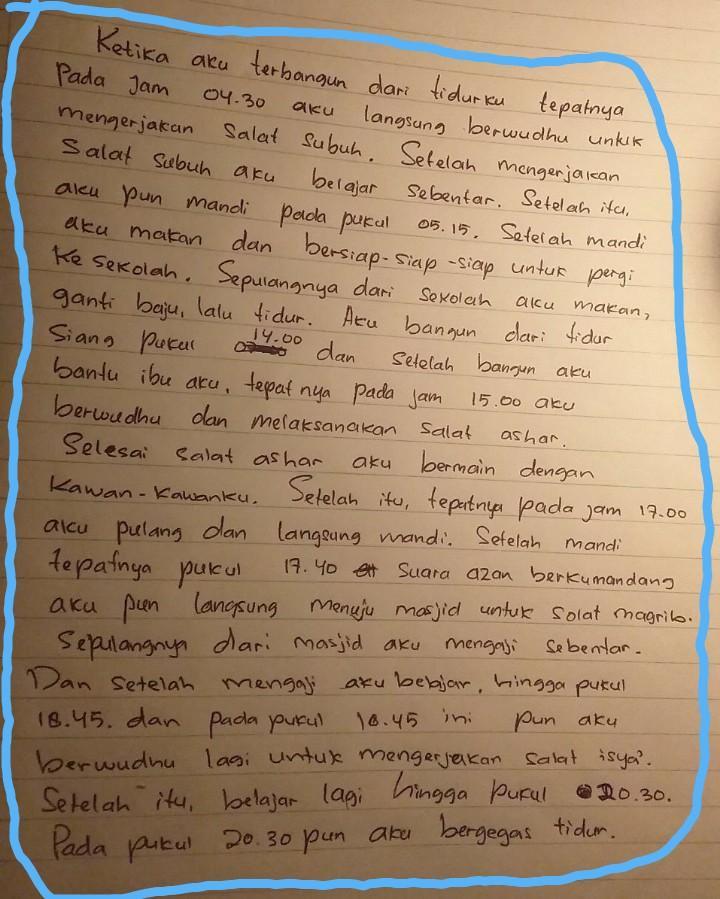 Ketika aku terbangun dari tidurku tepatnya
Pada Jam 04.30 aku langsung berwudhu untuk
mengerjakan Salat Subuh. Setelah mengerjakan
Salat Subuh aku belajar sebentar. Setelah itu,
aku pun mandi pada pukul 05.15. Setelah mandi
aku makan dan bersiap-siap-siap untuk pergi
Ke sekolah. Sepulangnya dari sekolah aku makan,
ganti baju, lalu tidur. Aku bangun dari tidur
Siang pukul 14.00 dan setelah bangun aku
bantu ibu aku, tepat nya pada jam 15.00 aku
berwudhu dan melaksanakan salat ashar.
Selesai salat ashar aku bermain dengan
Kawan-Kawanku. Setelah itu, tepatnya pada jam 17.00
aku pulang dan langsung mandi. Setelah mandi
tepatnya pukul 17.40 suara azan berkumandang
aku pun langsung menuju masjid untuk solat magrib.
Sepulangnya dari masjid aku mengaji sebentar.
Dan setelah mengaji aku belajar, hingga pukul
18.45. dan pada pukul 18.45 ini pun aku
berwudhu lagi untuk mengerjakan salat isya'.
Setelah itu, belajar lagi hingga pukul 20.30.
Pada pukul 20.30 pun aku bergegas tidur.